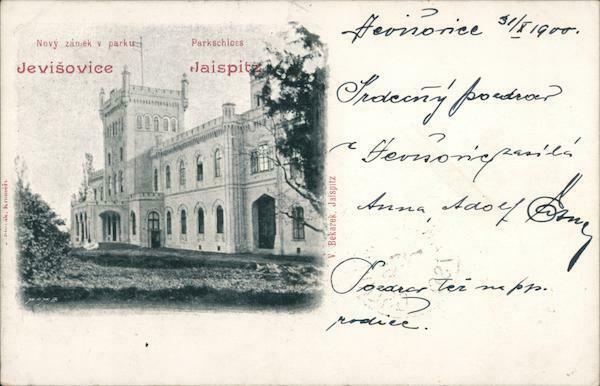 Nový zámek v parku Parkschloss
Jevišovice Jaispitz
V. Bekárek, Jaispitz
Jevišovice 31/X 1900.
Srdečný pozdrav
z Jevišovic zasílá
Anna, Adolf
Pozdrav též na pp.
rodiče.